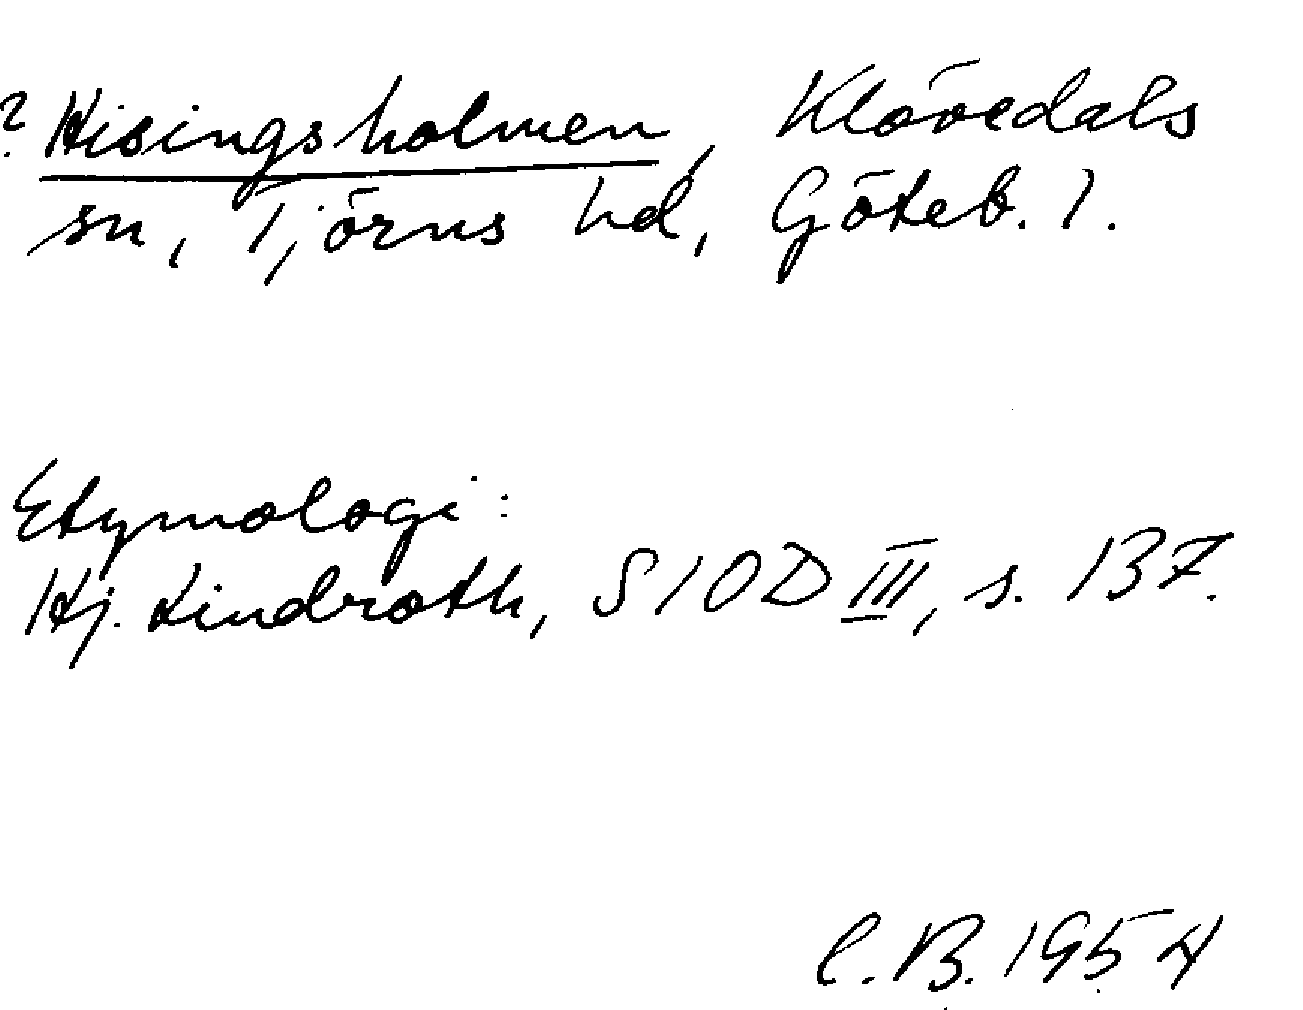 ? Hisingsholmen, Klövedals
sn, Tjörns hd, Göteb. l.
Etymologi:
Hj. Lindroth, SIOD III, s. 137.
C.B. 1954